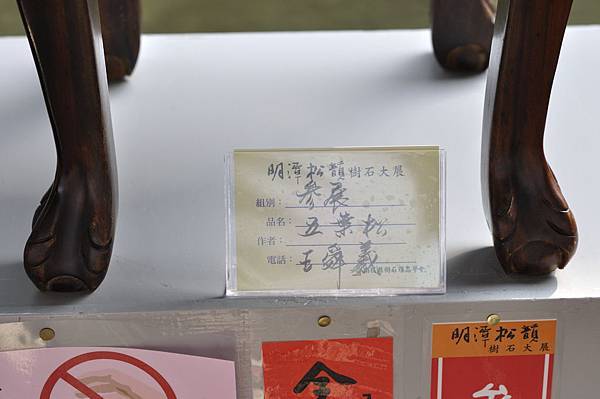 明潭松韻樹石大展
組別：參展
品名：五葉松
作者：王舜義
電話：
金
明潭松韻
樹石大展